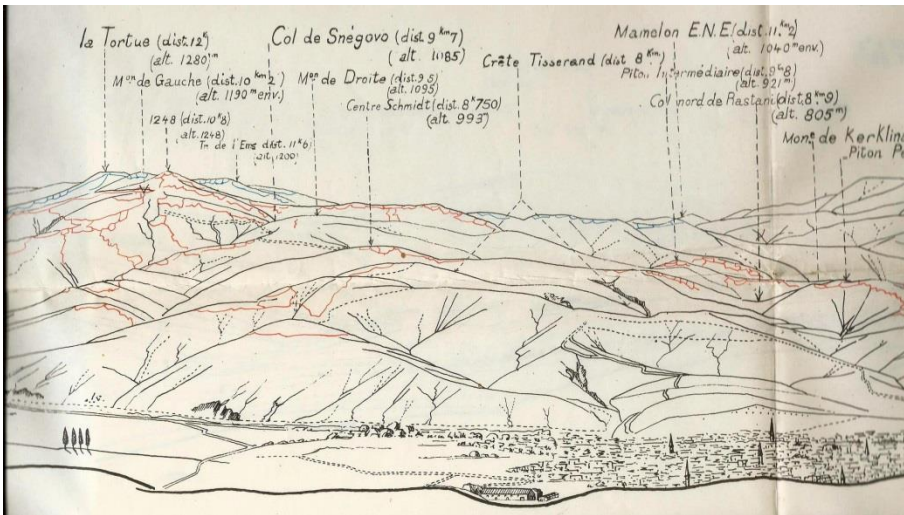 la Tortue (dist. 12ᵏ)
(alt. 1280)ᵐ
Mᵒⁿ de Gauche (dist. 10 ᵏᵐ 2)
(alt. 1190 ᵐ env.)
1248 (dist. 10ᵏ8)
(alt. 1248)
Tⁿ de l'Ems dist. 11ᵏ6)
(alt. 1200)
Col de Snégovo (dist. 9 ᵏᵐ7)
(alt. 1085)
Mᵒⁿ de Droite (dist. 9 5)
(alt. 1095)
Centre Schmidt (dist. 8ᵏ750)
(alt. 993ᵐ)
Crête Tisserand (dist 8 ᵏᵐ)
Mamelon E.N.E. (dist. 11.ᵏ2)
(alt. 1040 ᵐ env.)
Piton Intermédiaire (dist. 9ᵏ8)
(alt. 921ᵐ)
Col nord de Rastani (dist. 8ᵏᵐ9)
(alt. 805 ᵐ)
de Kerklina
Piton